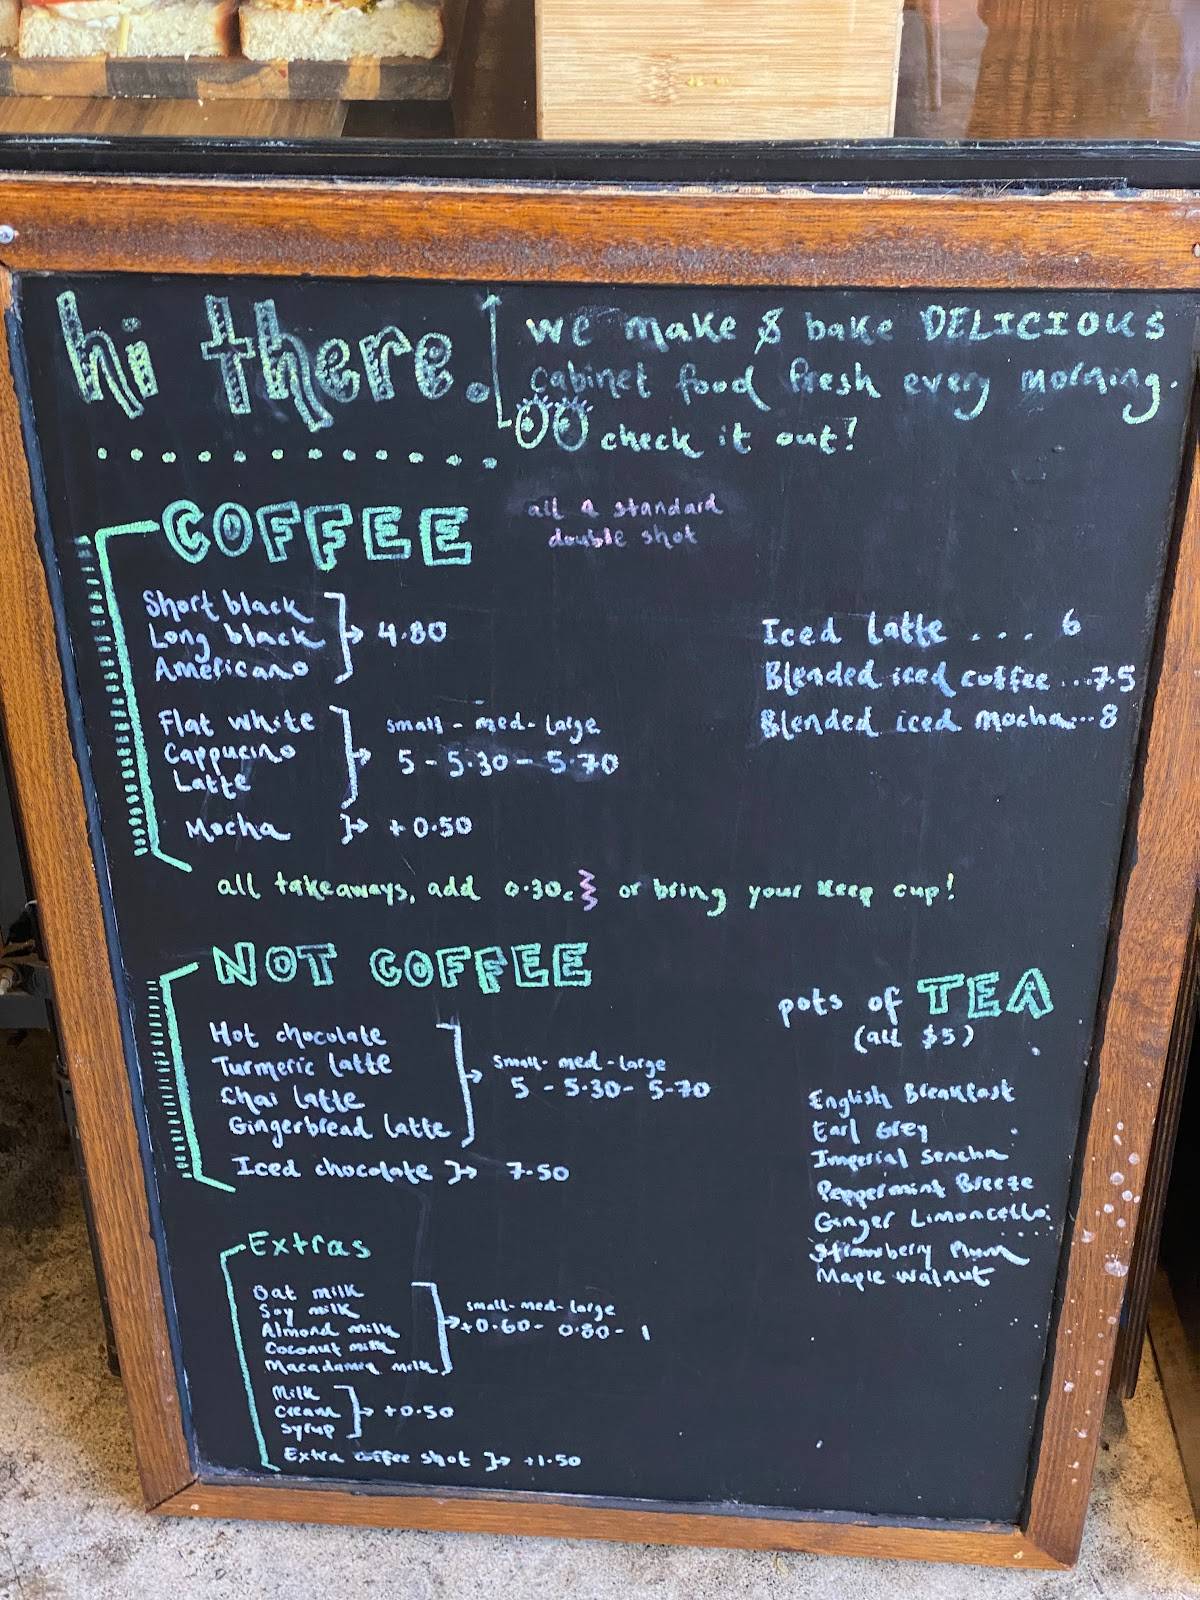 hi there.
we make & bake DELICIOUS
cabinet food fresh every morning.
check it out!
COFFEE
all a standard
double shot
Short black
Long black
Americano
4.80
Flat white
Cappucino
Latte
small - med - large
5 - 5.30 - 5.70
Mocha + 0.50
Iced latte ... 6
Blended iced coffee ...7.5
Blended iced mocha...8
all takeaways, add 0.30c or bring your keep cup!
NOT COFFEE
Hot chocolate
Turmeric latte
Chai latte
Gingerbread latte
small - med - large
5 - 5.30 - 5.70
Iced chocolate 7.50
pots of TEA
(all $5)
English Breakfast
Earl Grey
Imperial Sencha
Peppermint Breeze
Ginger Limoncello
Strawberry Plum
Maple Walnut
Extras
Oat milk
Soy milk
Almond milk
Coconut milk
Macadamia milk
small - med - large
+0.60 - 0.80 - 1
Milk
Cream
Syrup
+0.50
Extra coffee shot +1.50